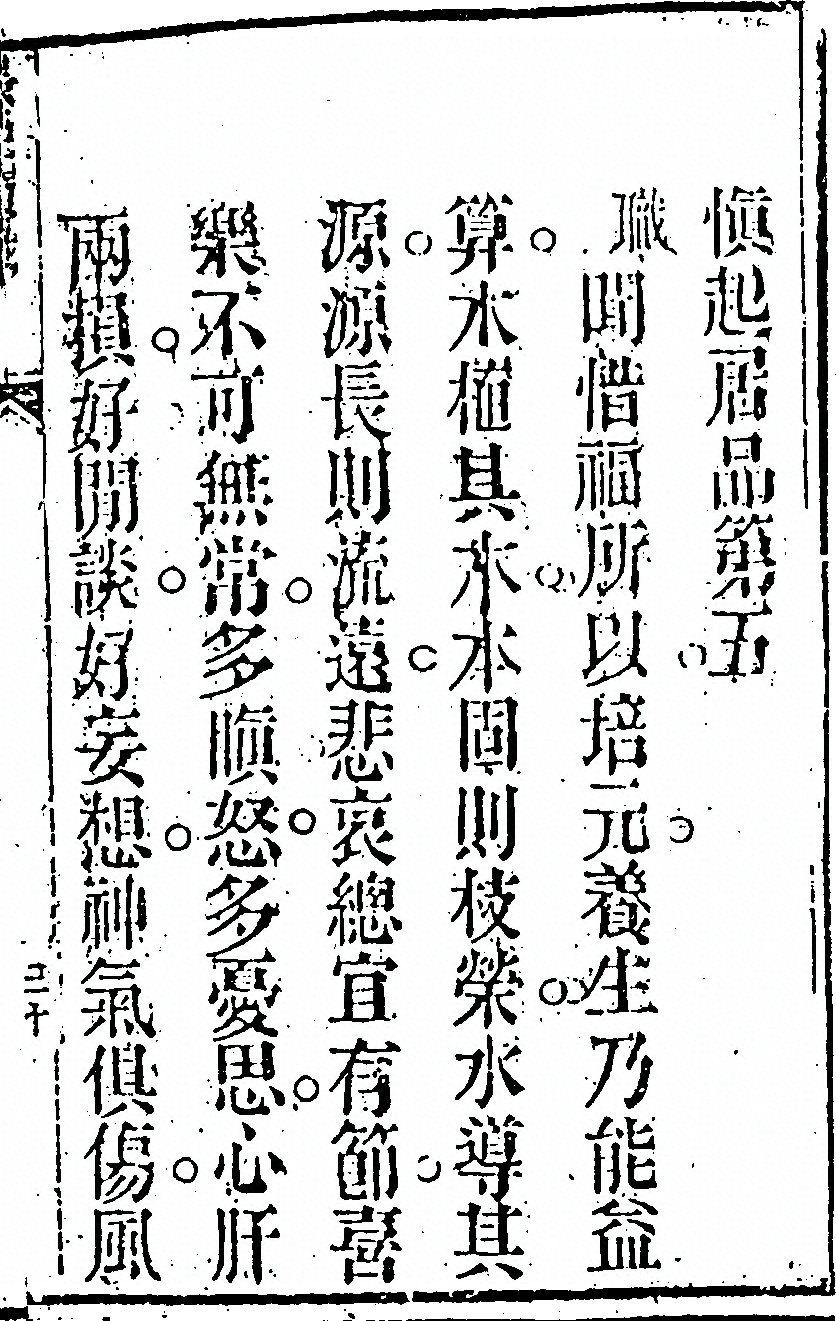 慎起居品第五
職聞惜福所以培元養生乃能益
算水植其木木固則枝榮水導其
源源長則流遠悲哀總宜有節喜
樂不可無常多嗔怒多憂思心肝
兩損好閒談好妄想神氣俱傷風
二十